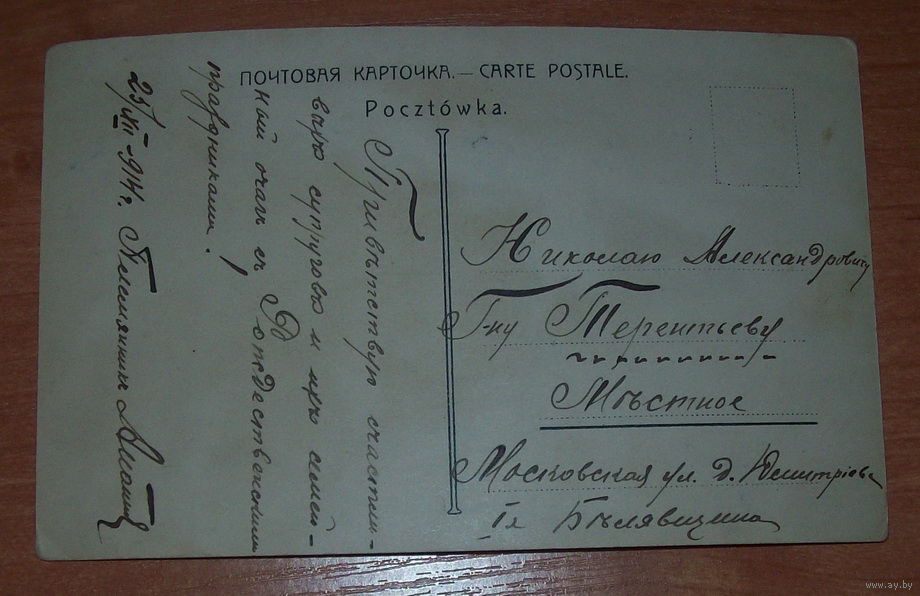 ПОЧТОВАЯ КАРТОЧКА. — CARTE POSTALE.
Pocztówka.
Привѣтствую счастли-
выхъ супруговъ и ихъ семей-
ный очагъ съ Рождественскими
праздниками!
25/XII-914г. Племянникъ
Николаю Александровичу
Г-ну Терентьеву
Мѣстное
Московская ул. д. Дмитріева
Бѣлявщина
www.ay.by